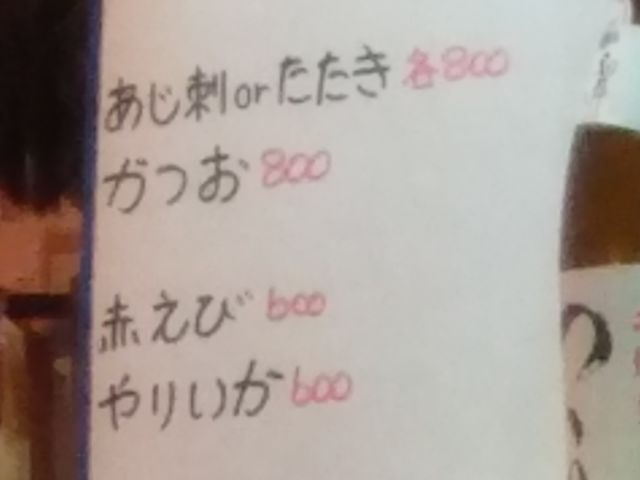 あじ刺orたたき 各800
かつお 800
赤えび 600
やりいか 600